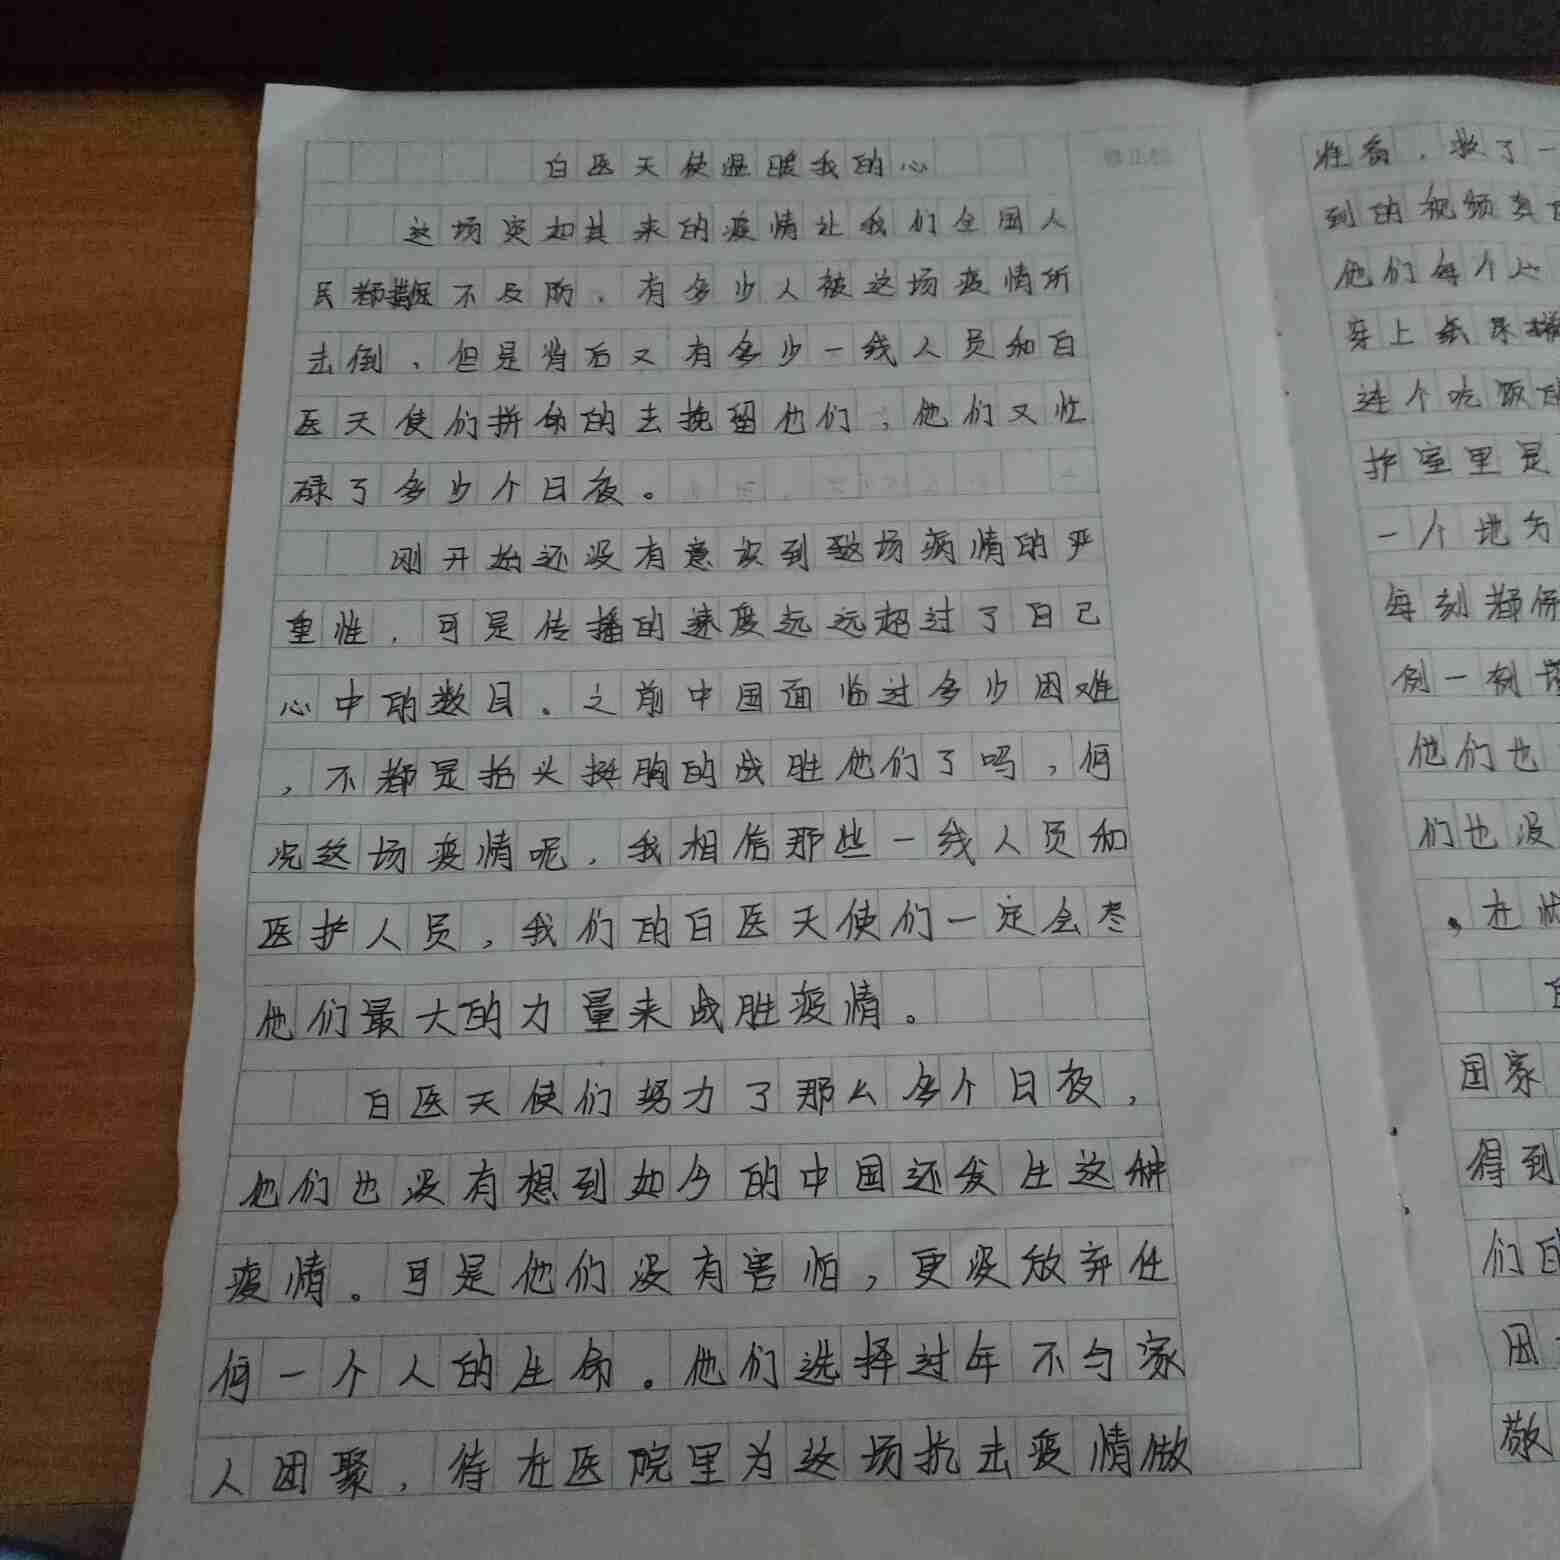 白医天使温暖我的心
这场突如其来的疫情让我们全国人
民都措不及防，有多少人被这场疫情所
击倒，但是背后又有多少一线人员和白
医天使们拼命的去挽留他们，他们又忙
碌了多少个日夜。
刚开始还没有意识到这场病情的严
重性，可是传播的速度远远超过了自己
心中的数目。之前中国面临过多少困难
，不都是抬头挺胸的战胜他们了吗，何
况这场疫情呢，我相信那些一线人员和
医护人员，我们的白医天使们一定会尽
他们最大的力量来战胜疫情。
白医天使们努力了那么多个日夜，
他们也没有想到如今的中国还发生这种
疫情。可是他们没有害怕，更没放弃任
何一个人的生命。他们选择过年不与家
人团聚，待在医院里为这场抗击疫情做
救了一
到的视频真
他们每个
穿上纸尿
连个吃饭的
护室里是
一个地方
每刻都保
例一例
他们也
们也没
，在
国家
得到
们
困
敬